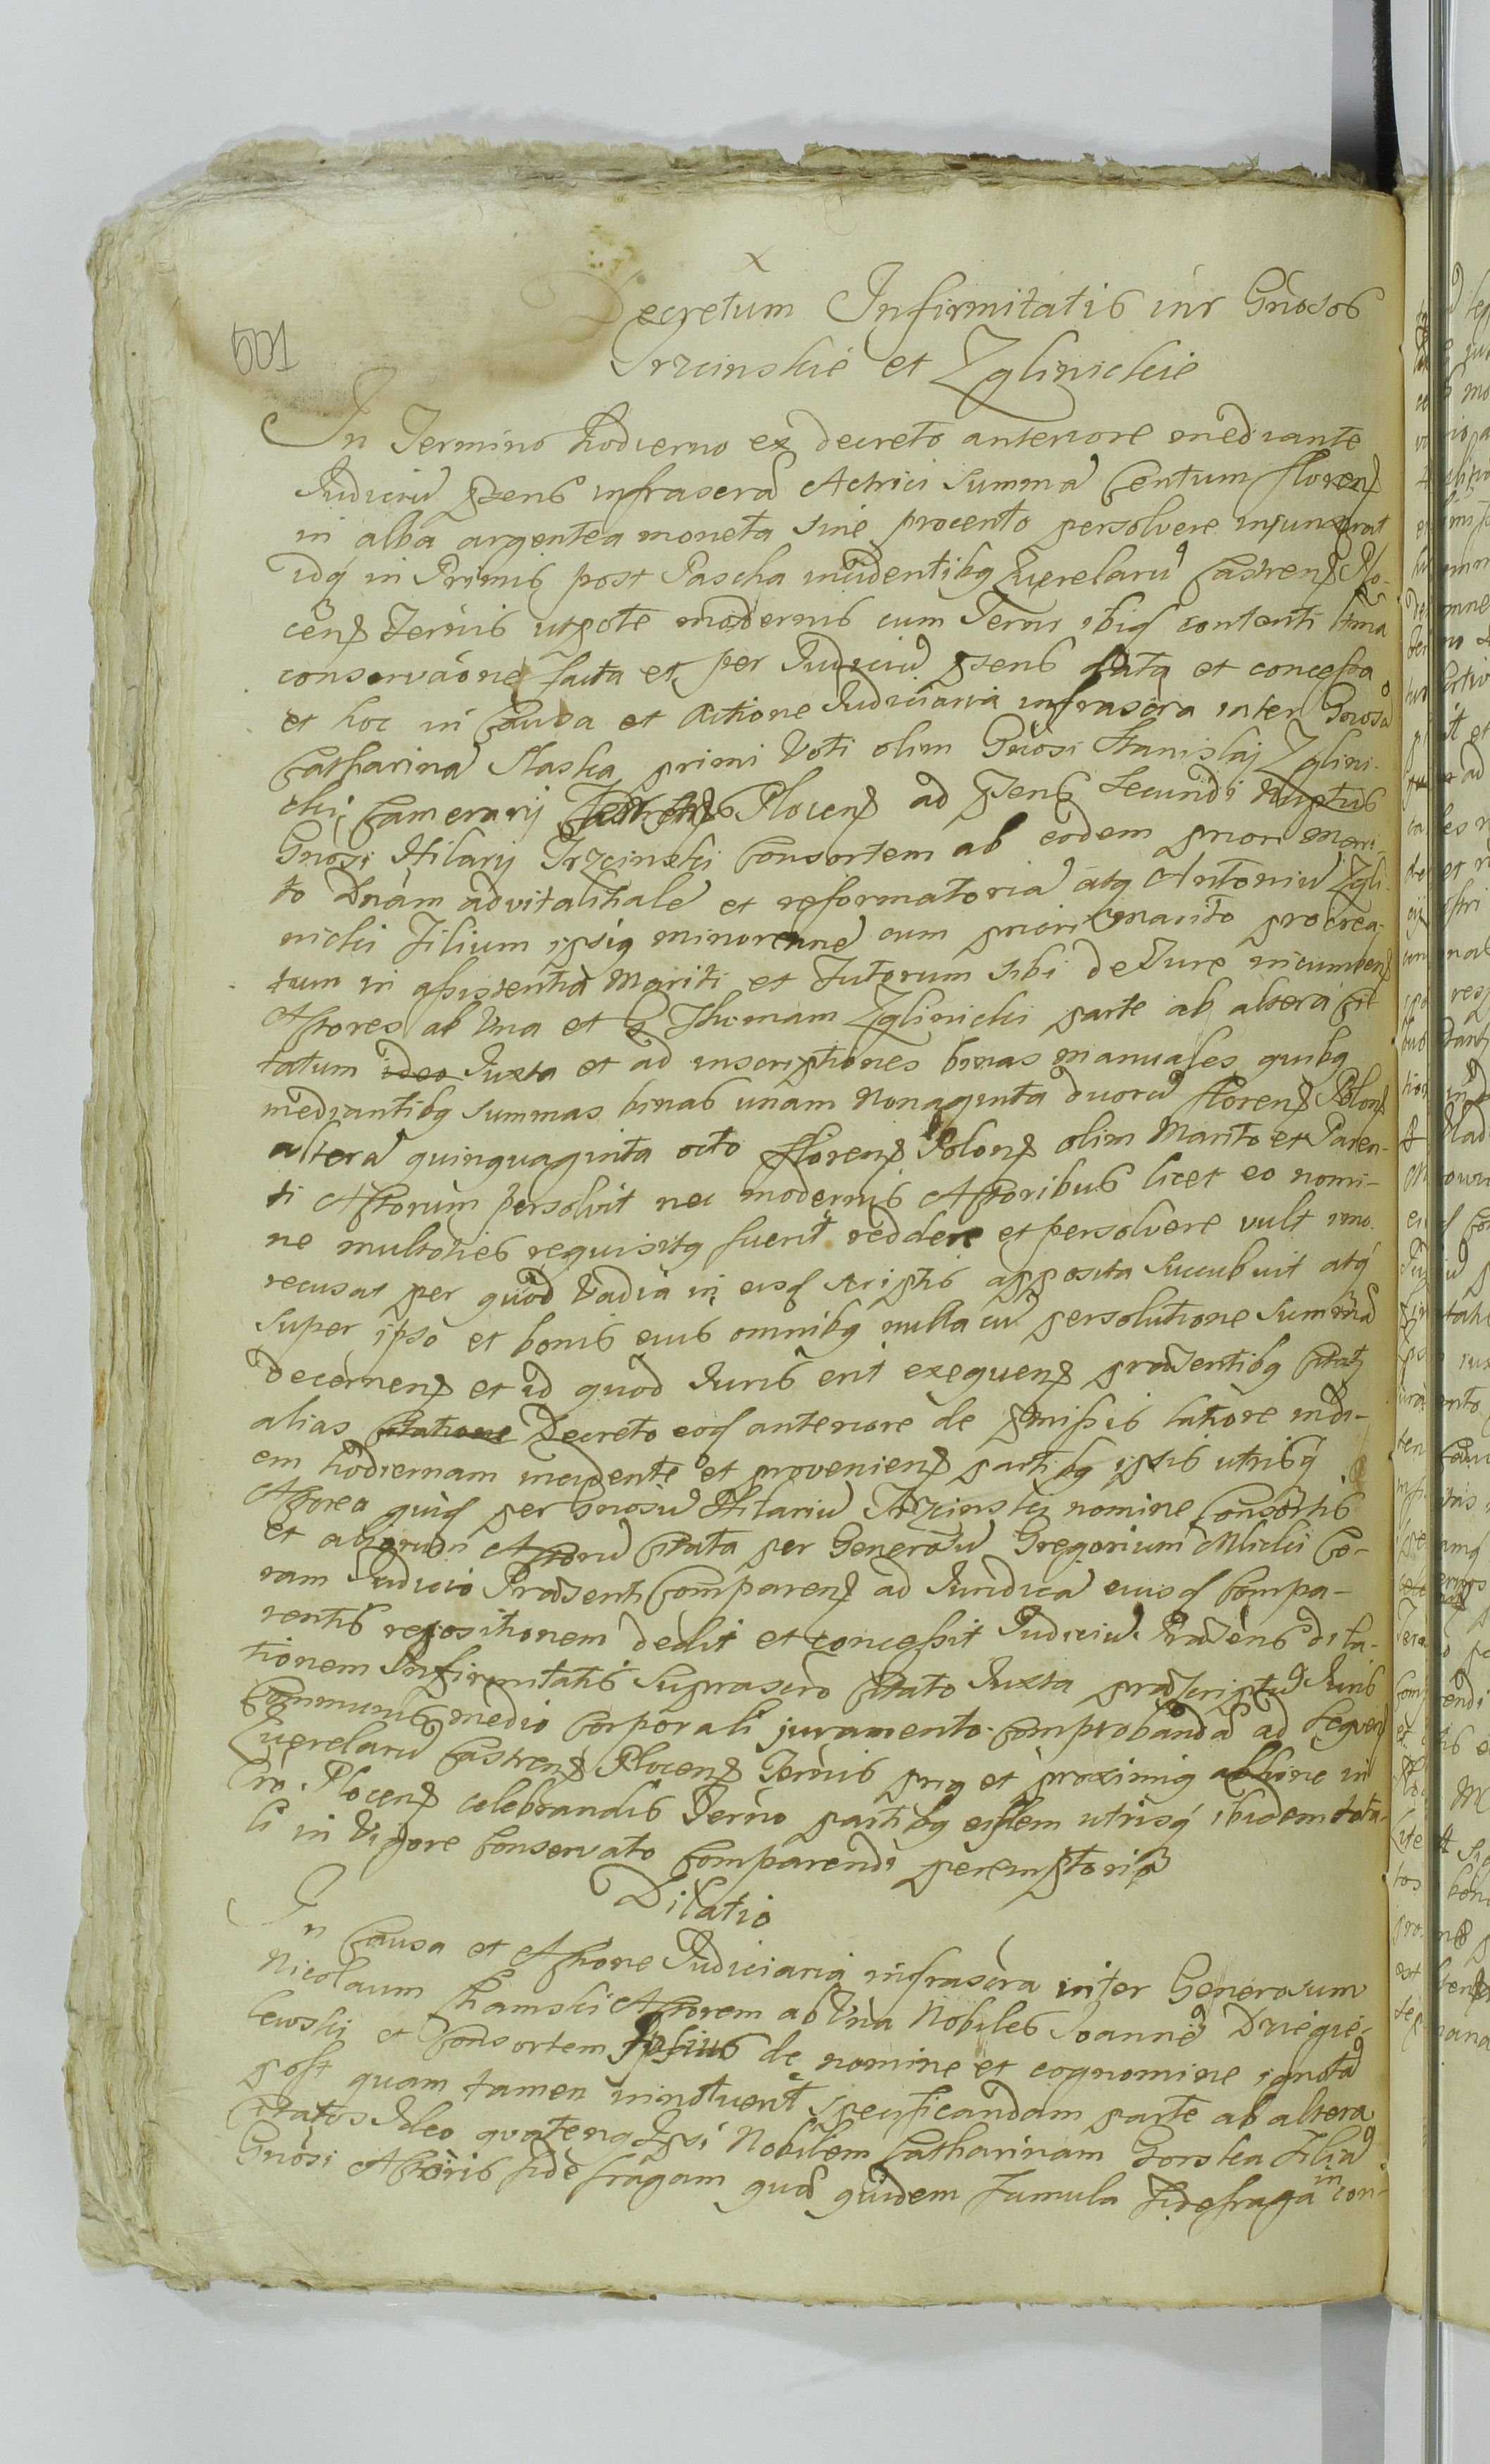 109
x
Decretum Infirmitatis intr Gnosos
Trzcinskie et Zglinickie
In Termino hodierno ex decreto anteriore mediante
Judiciu pñens infrascra Actrici Summa Centum floren
in alba argentea moneta sine procento persolvere injunxerat
idq in Primis post Pascha incidentibq Querelaru Castren Plo-
cen Termis utpote modernis cum Termi ibiq contenti
conservaone facta et per Judiciu pñens data et concessa
et hoc in Causa et Actione Judiciaria infrascra inter Gnosa
Catharina Naska primi Voti olim Gnosi Stanislaj Zglini-
cki Camerarij Plocen ad pñens Secundi Nuptus
Gnosi Hilarij Trzcinski Consortem ab eodem priori mari-
to Dnam advitalitale et reformatoria atq Antoniu Zgli-
nicki Filium ipsiq minorenne cum priori marito procrea-
tum in assistentia Mariti et Tutorum sibi de Jure incumben
Actores ab Vna et G Thomam Zglinicki parte ab altera Cit
tatum ideo Juxta et ad inscriptiones binas manuales quibq
mediantibq summas binas unam Nonaginta duoru floren Polon
altera quinquaginta octo floren Polon olim Marito et Paren-
ti Actorum persolvit nec modernis Actoribus licet eo nomi-
ne multoties requisitq fuerit reddere et persolvere vult imo
recusat per quod Vadia in eisq scriptis apposita succubuit atq
super ipso et bonis eius omnibq nulla cu persolutione summa
decernen et id quod Juris erit exequen praesentibq Citat
alias Citatione Decreto eoq anteriore de pmissis latiore indi-
em hodiernam incidente et provenien partibq ipsis utrisq
Actorea quiq per Gnosu Hilariu Trzcinski nomine Consortis
et aliorum Actoru Citata per Generosu Gregorium Milicki Co-
ram Judicio Praesenti Comparen ad Juridica eiusq Compa-
rentis repositionem dedit et concessit Judiciu Praesens dila-
tionem Infirmitatis suprascro Citato Juxta praescriptu Juris
Communis medio Corporali juramento comprobanda ad sequen
Querelaru Castren Plocen Termis priq et proximiq abhinc in
Cro Plocen celebrandis Termo partibq eisdem utrisq ibidem tota-
li in Vigore Conservato Comparendi peremptorie
Dilatio
In Causa et Actione Judiciaria infrascra inter Generosum
Nicolaum Chamski Actorem ab Vna Nobiles Joanne Dziegie-
lewski et Consortem Ipsius de nomine et cognomine ignota
post quam tamen innotuerit specificandam parte ab altera
Citatos Ideo quatenq Ipsi Nobilem Catharinam Gorska Filia
Gnosi Actoris fide fragam quae quidem Famula Fidefraga in con-